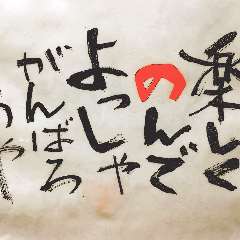 楽しく
のんで
よっしゃ
がんばろ
うや